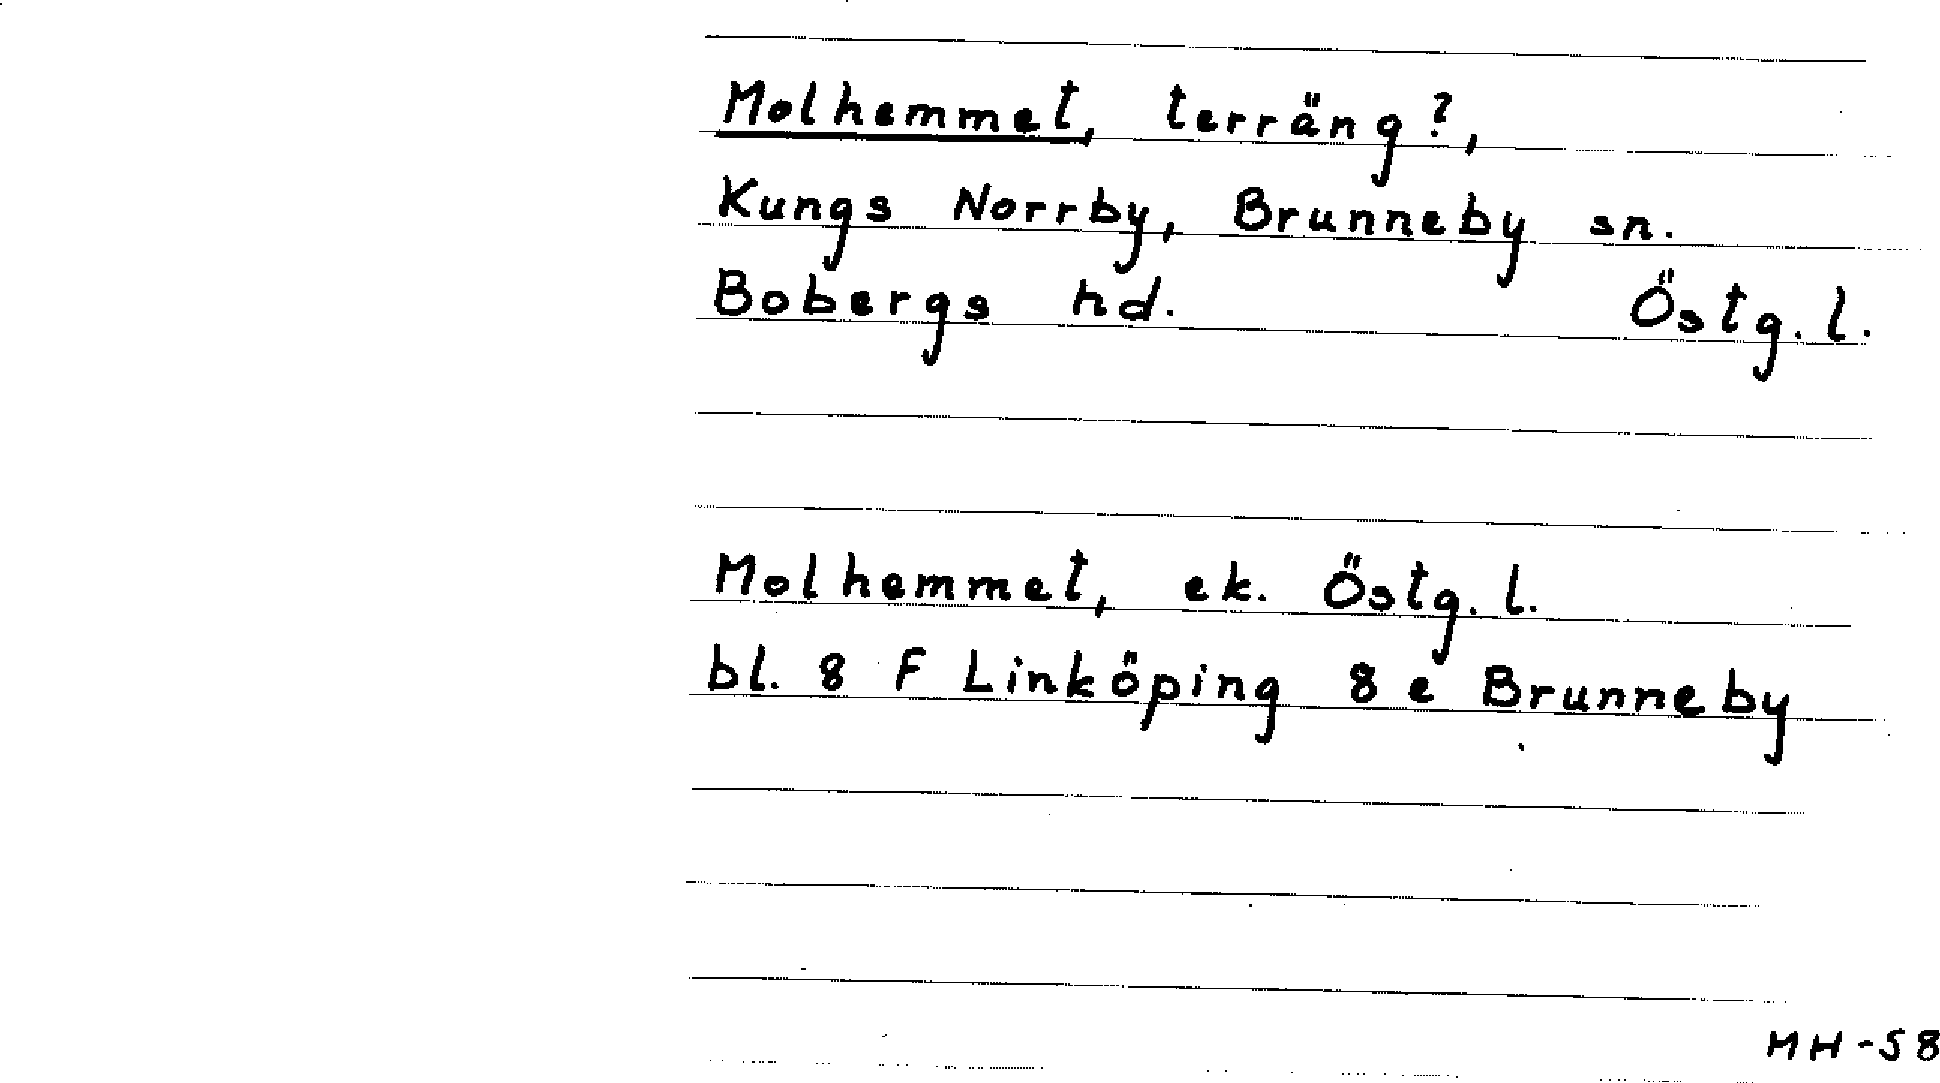 Molhemmet, terräng?,
Kungs Norrby, Brunneby sn.
Bobergs hd. Östg. l.
Molhemmet, ek. Östg. l.
bl. 8 F Linköping 8 e Brunneby
MH-58